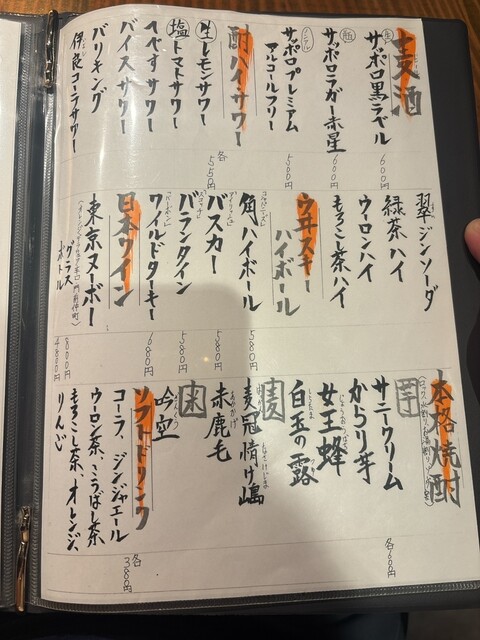 麦酒
㊗サッポロ黒ラベル
600円
サッポロラガー赤星
600円
サッポロプレミアム
アルコールフリー
500円
酎ハイサワー
生レモンサワー
塩トマトサワー
へべすサワー
バイスサワー
バリキング
伊良コーラサワー
各550円
翠ジンソーダ
緑茶ハイ
ウーロンハイ
もろこし茶ハイ
ウヰスキー
ハイボール
角ハイボール
580円
バスカー
580円
バランタイン
580円
ワイルドターキー
680円
日本ワイン
東京ヌーボー
グラス
800円
ボトル
4800円
本格焼酎
芋
サニークリーム
からり芋
女王蜂
じょおうばち
白玉の露
しらたま
つゆ
麦
麦冠情け嶋
赤鹿毛
あかかげ
米
吟空
各600円
ソフトドリンク
コーラ、ジンジャエール
ウーロン茶、こうばし茶
もろこし茶、オレンジ、
りんご
各380円